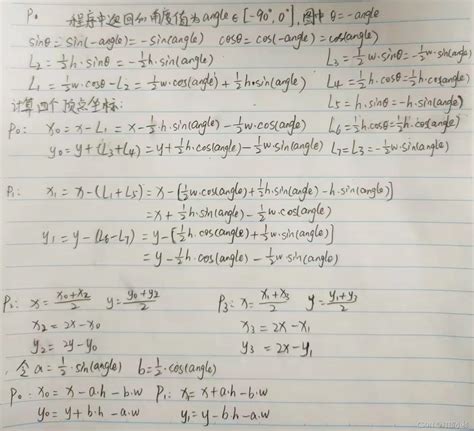 P₀ 程序中返回的角度值为angle∈[-90°,0°],图中θ=-angle
sinθ=sin(-angle)=-sin(angle) cosθ=cos(-angle)=cos(angle)
L₂=½h·sinθ=-½h·sin(angle) L₃=½w·sinθ=-½w·sin(angle)
L₁=½w·cosθ-L₂=½w·cos(angle)+½h·sin(angle) L₄=½h·cosθ=½h·cos(angle)
L₅=h·sinθ=-h·sin(angle)
计算四个顶点坐标:
P₀: x₀=x-L₁=x-½h·sin(angle)-½w·cos(angle) L₆=½h·cosθ=½h·cos(angle)
y₀=y+(L₃+L₄)=y+½h·cos(angle)-½w·sin(angle) L₇=L₃=-½w·sin(angle)
P₁: x₁=x-(L₁+L₅)=x-[½w·cos(angle)+½h·sin(angle)-h·sin(angle)]
=x+½h·sin(angle)-½w·cos(angle)
y₁=y-(L₆-L₇)=y-[½h·cos(angle)+½w·sin(angle)]
=y-½h·cos(angle)-½w·sin(angle)
P₂: x=(x₀+x₂)/2 y=(y₀+y₂)/2 P₃: x=(x₁+x₃)/2 y=(y₁+y₃)/2
x₂=2x-x₀ x₃=2x-x₁
y₂=2y-y₀ y₃=2x-y₁
令a=½·sin(angle) b=½·cos(angle)
P₀: x₀=x-a·h-b·w P₁: x₁=x+a·h-b·w
y₀=y+b·h-a·w y₁=y-b·h-a·w